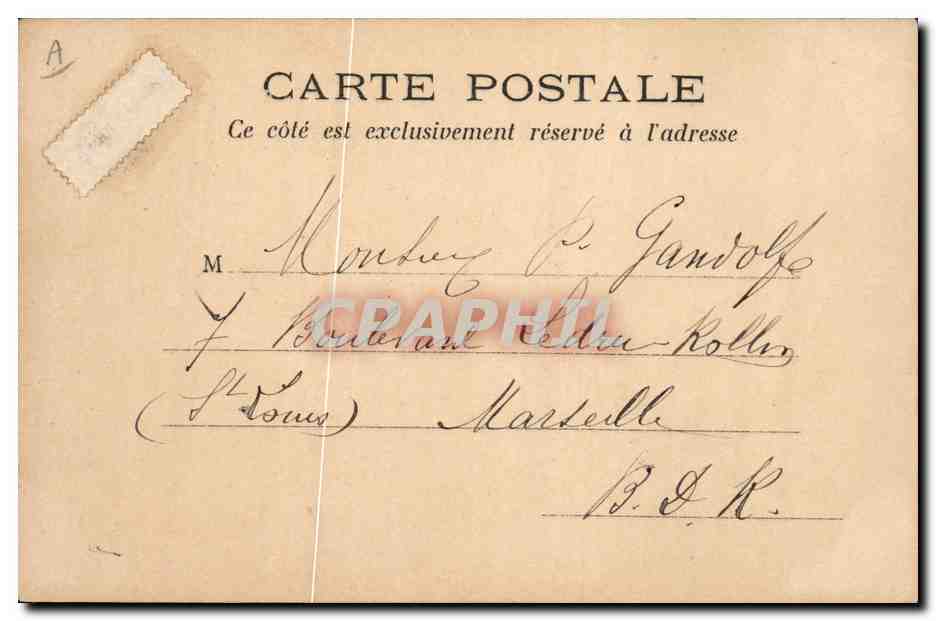 A
CARTE POSTALE
Ce côté est exclusivement réservé à l'adresse
M Monsieur P. Gandolfe
7 Boulevard Ledru-Rollin
CPARHIL
(St Louis) Marseille
B. D. R.